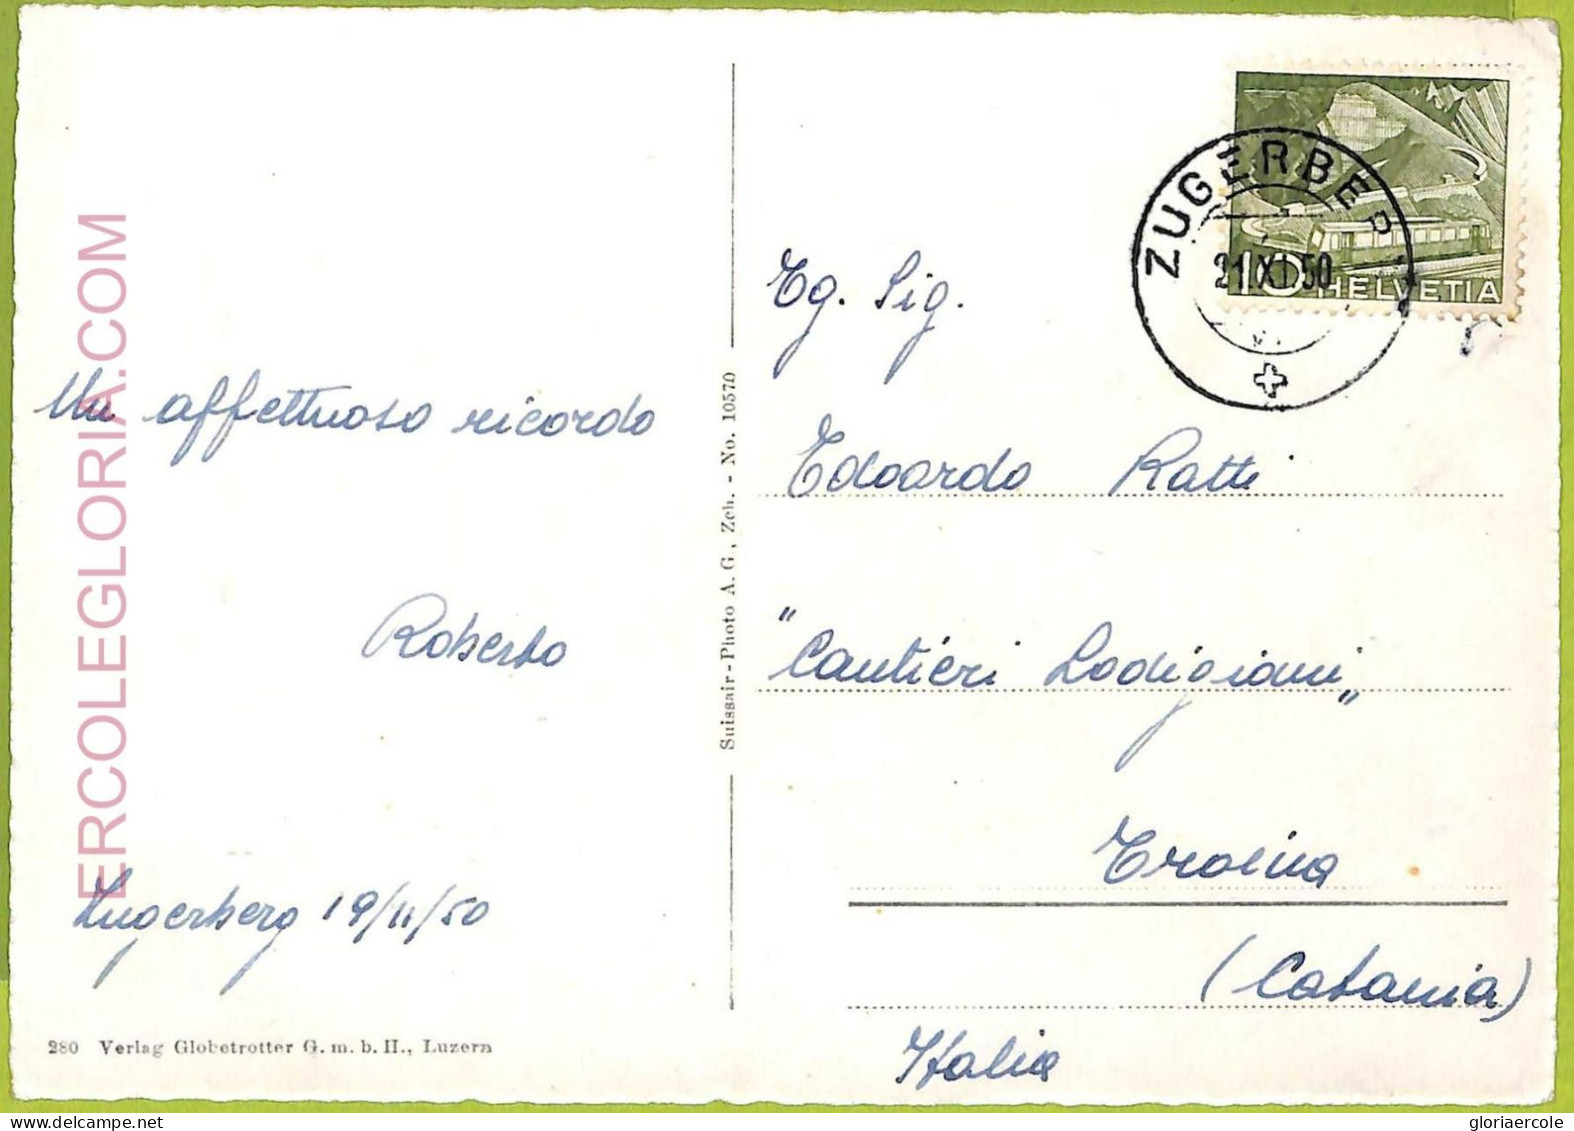 ERCOLEGLORIA.COM
Un affettuoso ricordo
Roberto
Zugerberg 19/11/50
280 Verlag Globetrotter G.m.b.H., Luzern
Suissair-Photo A.G., Zch. - No. 10570
ZUGERBERG
21.XI.50
10 HELVETIA
Eg. Sig.
Edoardo Ratti
"Cantieri Lodigiani"
Troina
(Catania)
Italia
delcampe.net
gloriaercole